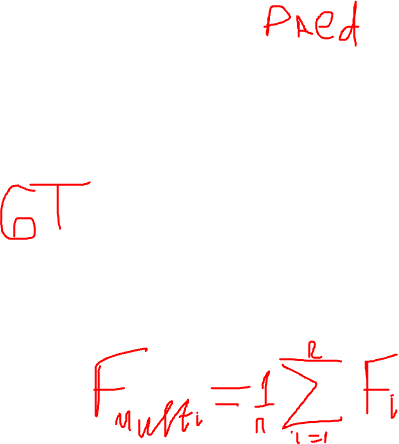 Pred
GT
F_multi = 1/n ∑_{i=1}^{n} F_i